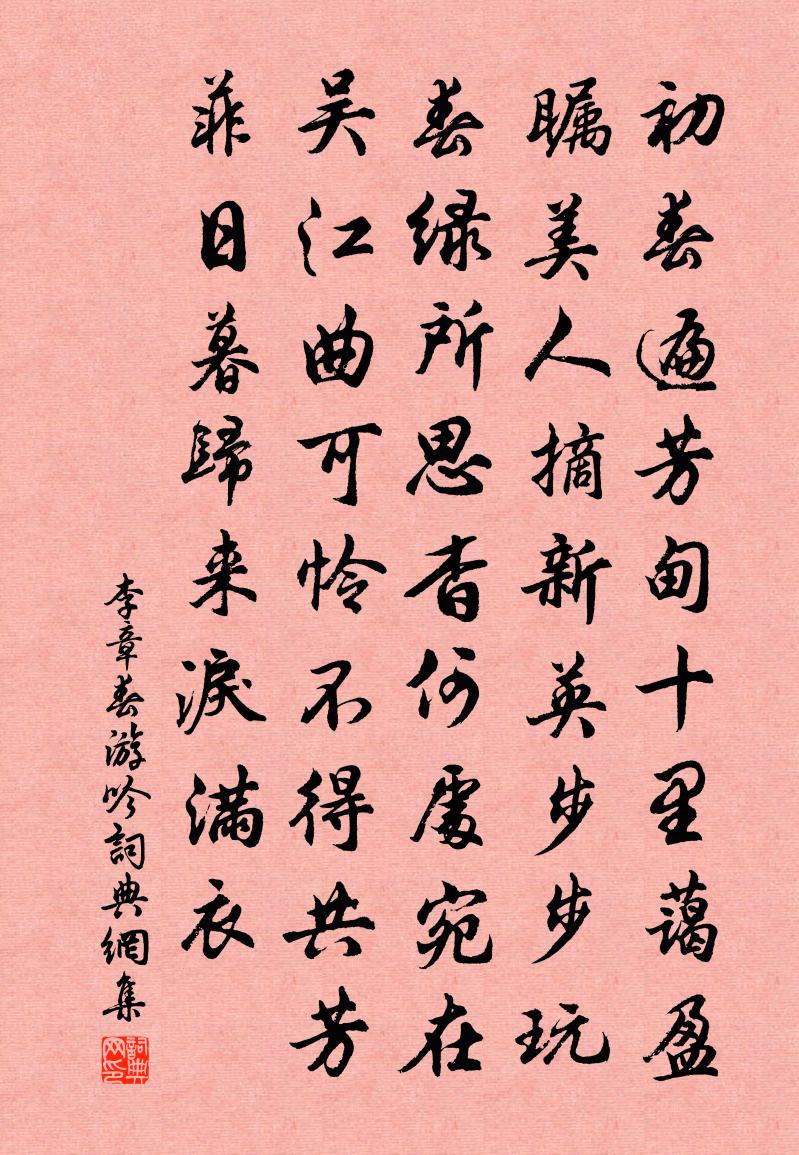 初春遍芳甸十里藹盈
矚美人摘新英步步玩
春綠所思杳何處宛在
吳江曲可憐不得共芳
菲日暮歸来淚滿衣
李章春游吟詞典網集
詞典网印